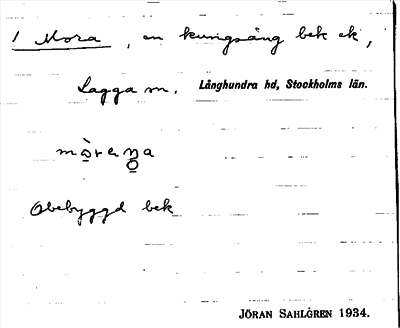 1 Mora, en kungsäng bek ek,
Lagga sn. Långhundra hd, Stockholms län.
mo̱̊reṉa
Obebyggd bek
JÖRAN SAHLGREN 1934.